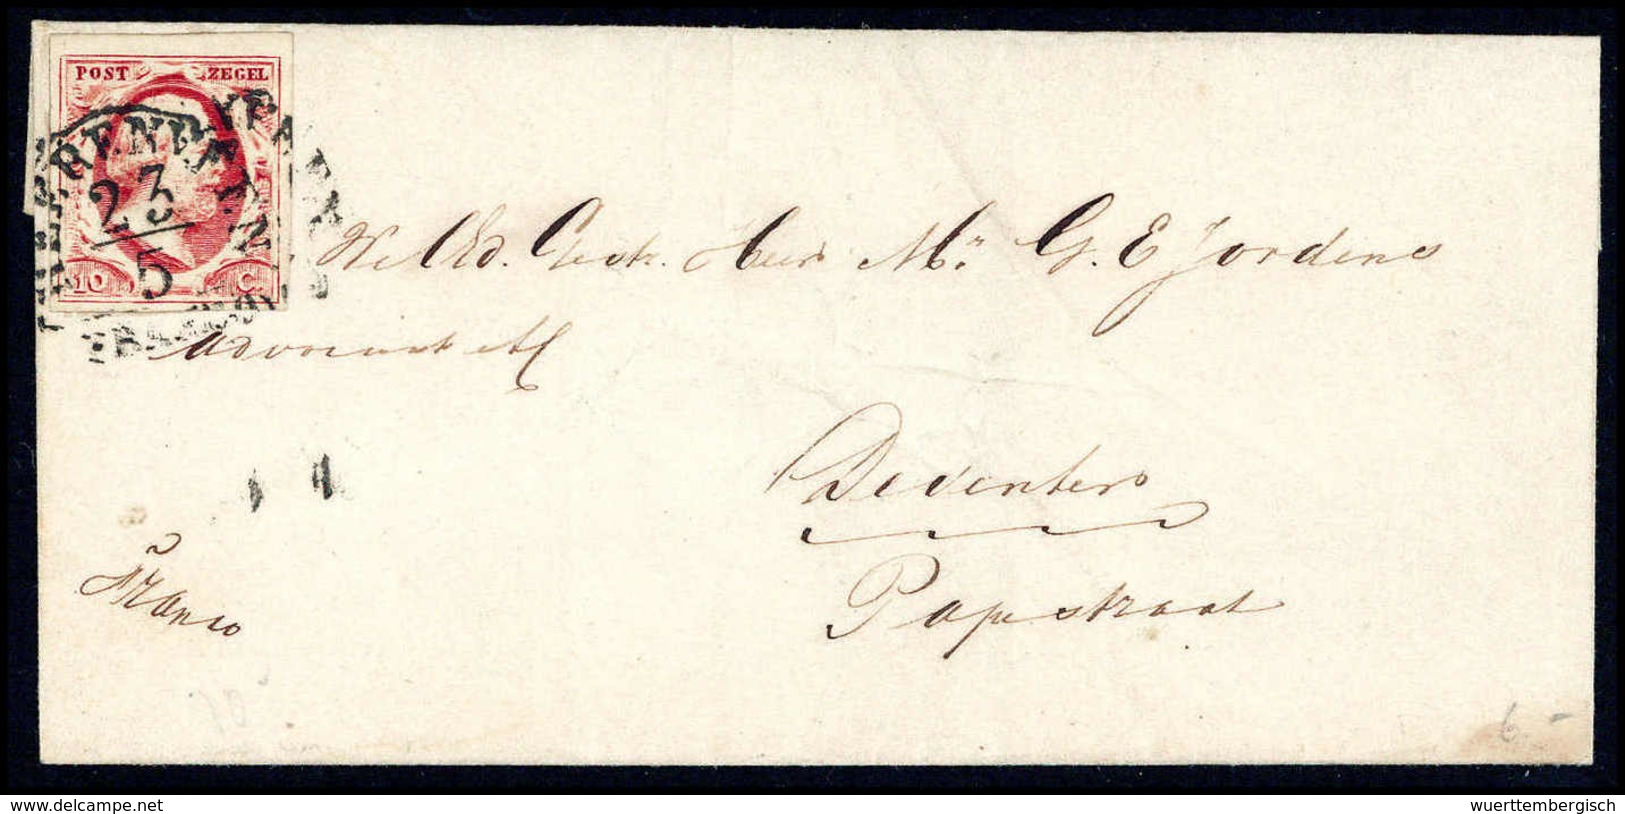 POST ZEGEL
HEERENVEEN
23
5
10 C.
FRANCO
WelEd. Gestr. Heer Mr. G. E Jordens
Advocaat &
Deventer
Papestraat
Franco
10
6.-
www.delcampe.net
wuerttembergisch